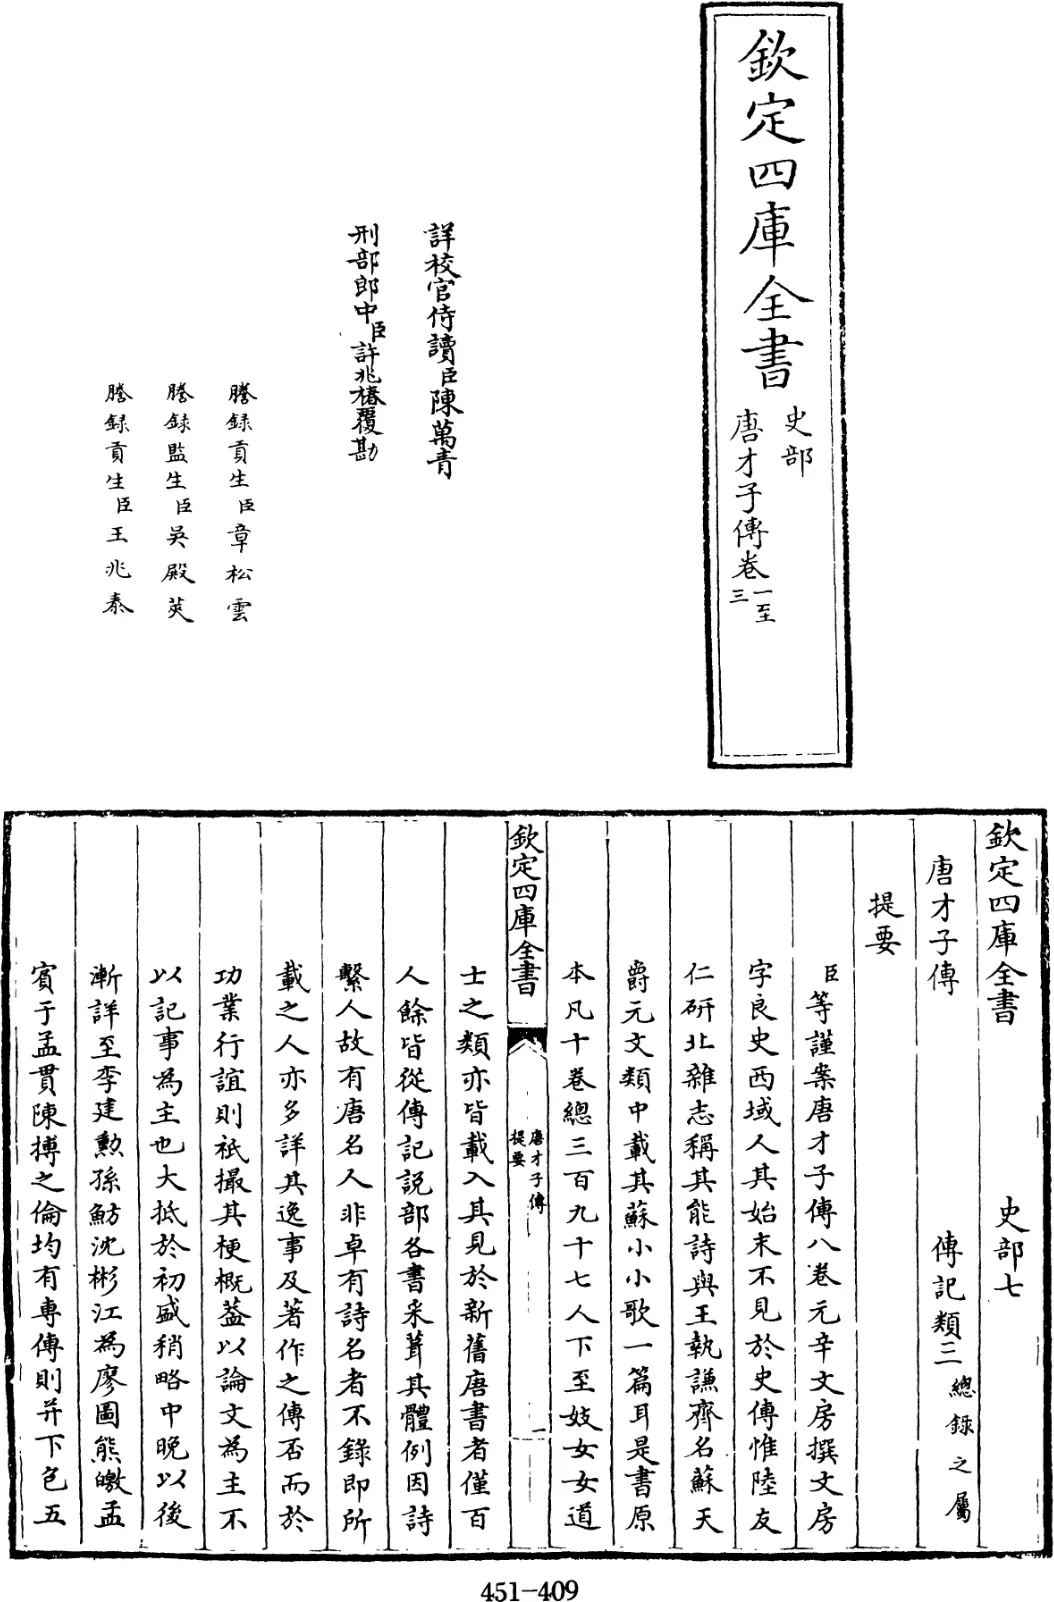 欽定四庫全書
史部
唐才子傳卷一至三
詳校官侍讀臣陳萬青
刑部郎中臣許兆椿覆勘
謄錄貢生臣章松雲
謄錄監生臣吳殿英
謄錄貢生臣王兆泰
欽定四庫全書 史部七
唐才子傳 傳記類三總錄之屬
提要
臣等謹案唐才子傳八卷元辛文房撰文房
字良史西域人其始末不見於史傳惟陸友
仁研北雜志稱其能詩與王執謙齊名蘇天
爵元文類中載其蘇小小歌一篇耳是書原
本凡十卷總三百九十七人下至妓女女道
欽定四庫全書
唐才子傳
提要
一
士之類亦皆載入其見於新舊唐書者僅百
人餘皆從傳記說部各書采葺其體例因詩
繫人故有唐名人非卓有詩名者不錄即所
載之人亦多詳其逸事及著作之傳否而於
功業行誼則祇撮其梗概葢以論文為主不
以記事為主也大抵於初盛稍略中晚以後
漸詳至李建勲孫魴沈彬江為廖圖熊皦孟
賓于孟貫陳摶之倫均有專傳則并下包五
451-409